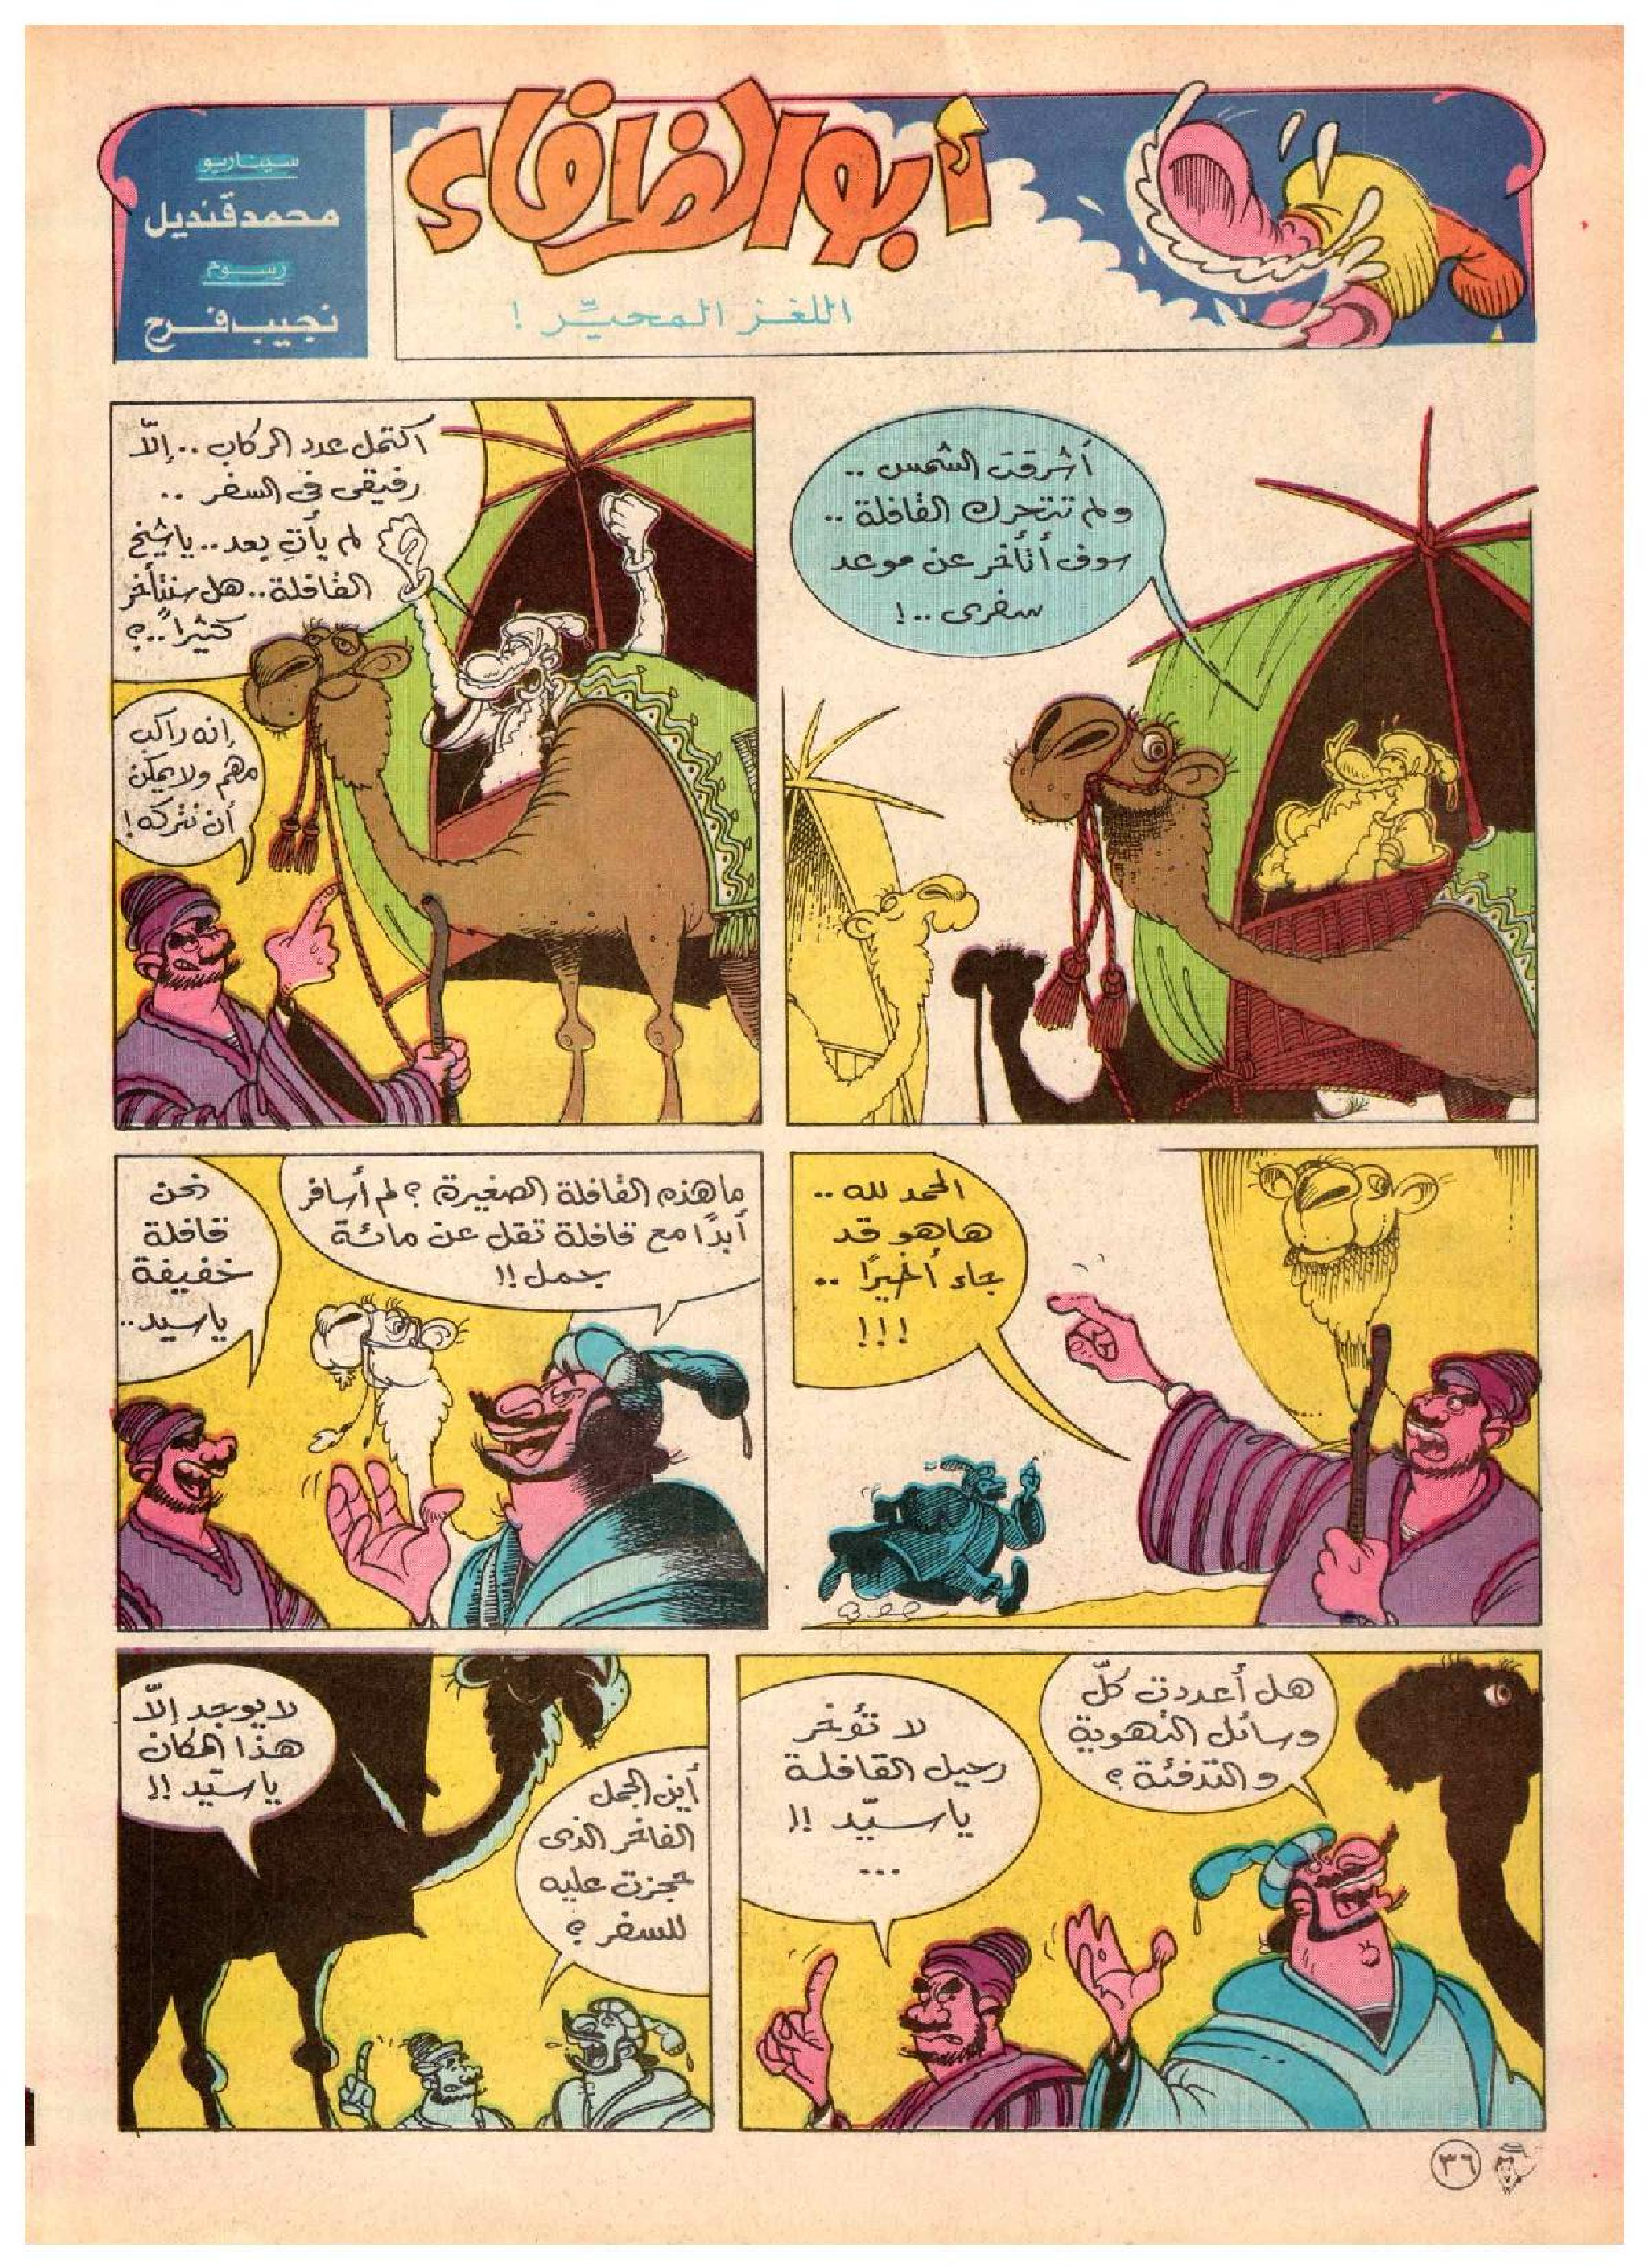 أبو الظرفاء
اللغز المحيِّر !
سيناريو
محمد قنديل
رسوم
نجيب فرح
أشرقت الشمس ..
ولم تتحرك القافلة ..
سوف أتأخر عن موعد
سفرى ..!
اكتمل عدد الركاب .. إلاّ
رفيقى فى السفر ..
لم يأتِ بعد .. ياشيخ
القافلة .. هل سنتأخر
كثيراً ..؟
إنه راكب
مهم ولا يمكن
أن نتركه !
الحمد لله ..
هاهو قد
جاء أخيرًا ..
!!!
ما هذه القافلة الصغيرة ؟ لم أسافر
أبدًا مع قافلة تقل عن مائة
جمل !!
نحن
قافلة
خفيفة
ياسيد ..
هل أعددت كلّ
وسائل التهوية
والتدفئة ؟
لا تؤخر
رحيل القافلة
ياسيّد !!
...
أين الجمل
الفاخر الذى
حجزت عليه
للسفر ؟
لا يوجد إلاّ
هذا المكان
ياسيّد !!
٣٦